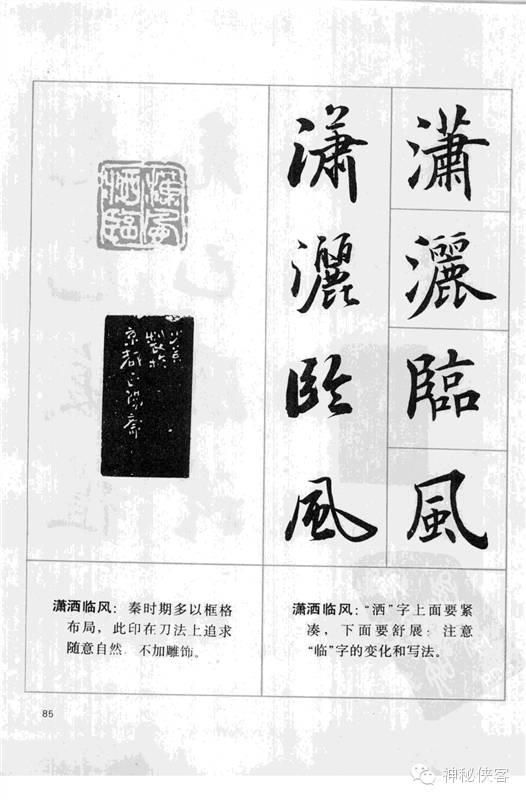 瀟
灑
臨
風
瀟
灑
臨
風
瀟灑臨風
京都
潇洒临风：秦时期多以框格
布局，此印在刀法上追求
随意自然 不加雕饰。
潇洒临风：“洒”字上面要紧
凑，下面要舒展；注意
“临”字的变化和写法。
85
神秘侠客